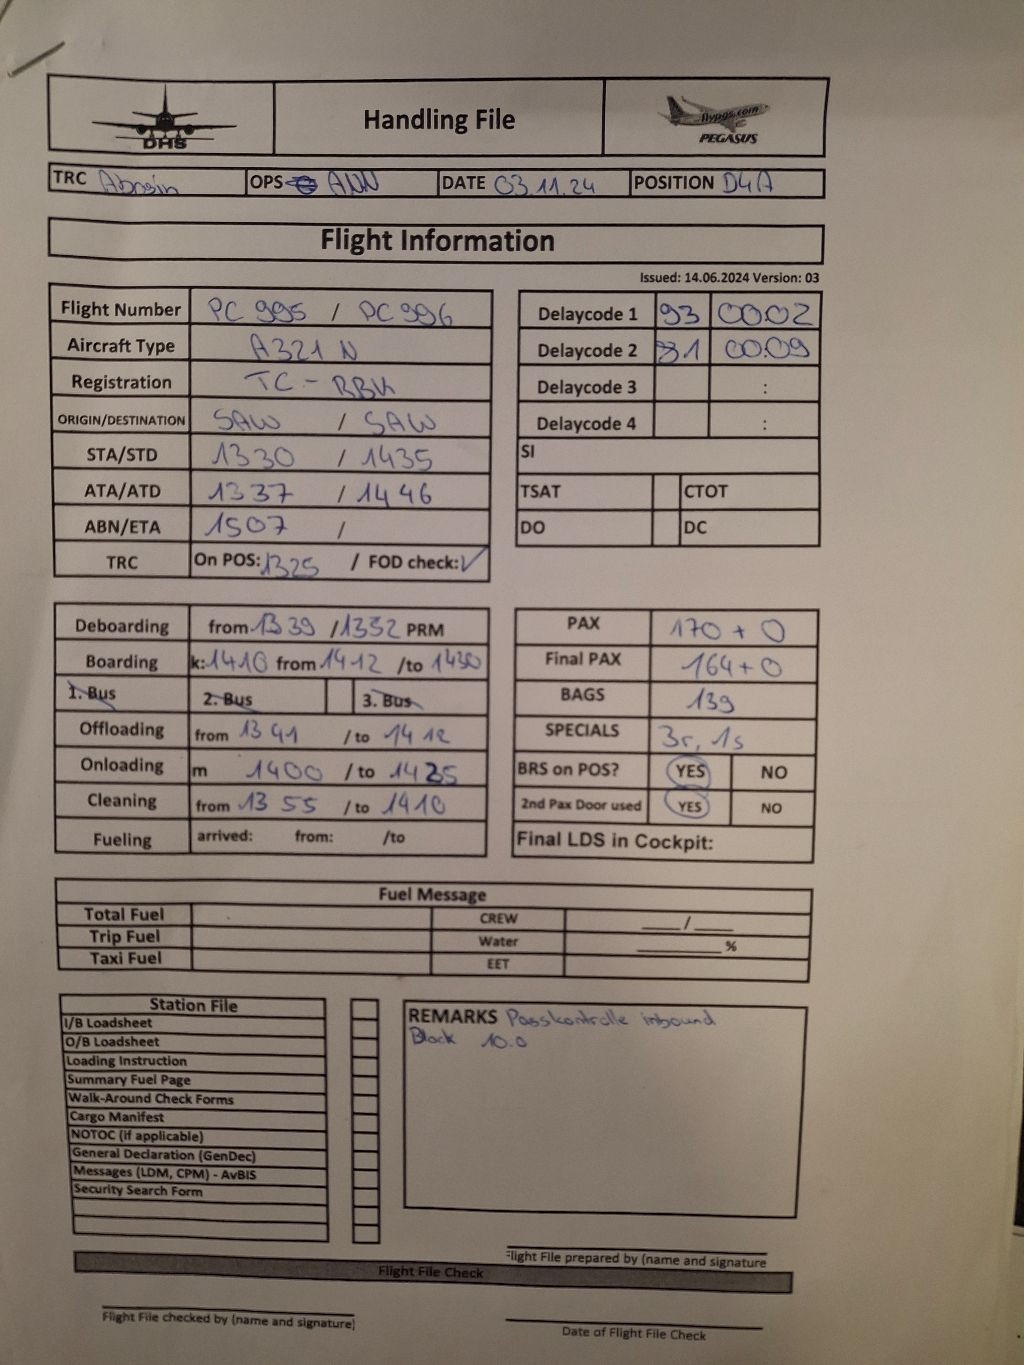 DHS
Handling File
flypgs.com
PEGASUS
TRC OPS ANN DATE 03.11.24 POSITION D4A
Flight Information
Issued: 14.06.2024 Version: 03
Flight Number PC 995 / PC 996
Aircraft Type A321 N
Registration TC - RBK
ORIGIN/DESTINATION SAW / SAW
STA/STD 1330 / 1435
ATA/ATD 1337 / 1446
ABN/ETA 1507 /
TRC On POS: 1325 / FOD check: ✓
Delaycode 1 93 00:02
Delaycode 2 00:09
Delaycode 3 :
Delaycode 4 :
SI
TSAT CTOT
DO DC
Deboarding from 1339 / 1352 PRM
Boarding k: 1410 from 1412 /to 1430
1. Bus 2. Bus 3. Bus
Offloading from 1341 /to 1412
Onloading m 1400 /to 1425
Cleaning from 1355 /to 1410
Fueling arrived: from: /to
PAX 170 + 0
Final PAX 164 + 0
BAGS 139
SPECIALS 3r, 1s
BRS on POS? YES NO
2nd Pax Door used YES NO
Final LDS in Cockpit:
Fuel Message
Total Fuel CREW ____/____
Trip Fuel Water ________%
Taxi Fuel EET
Station File
I/B Loadsheet
O/B Loadsheet
Loading Instruction
Summary Fuel Page
Walk-Around Check Forms
Cargo Manifest
NOTOC (if applicable)
General Declaration (GenDec)
Messages (LDM, CPM) - AvBIS
Security Search Form
REMARKS Passkontrolle inbound
Block 10.0
Flight File prepared by (name and signature
Flight File Check
Flight File checked by (name and signature)
Date of Flight File Check